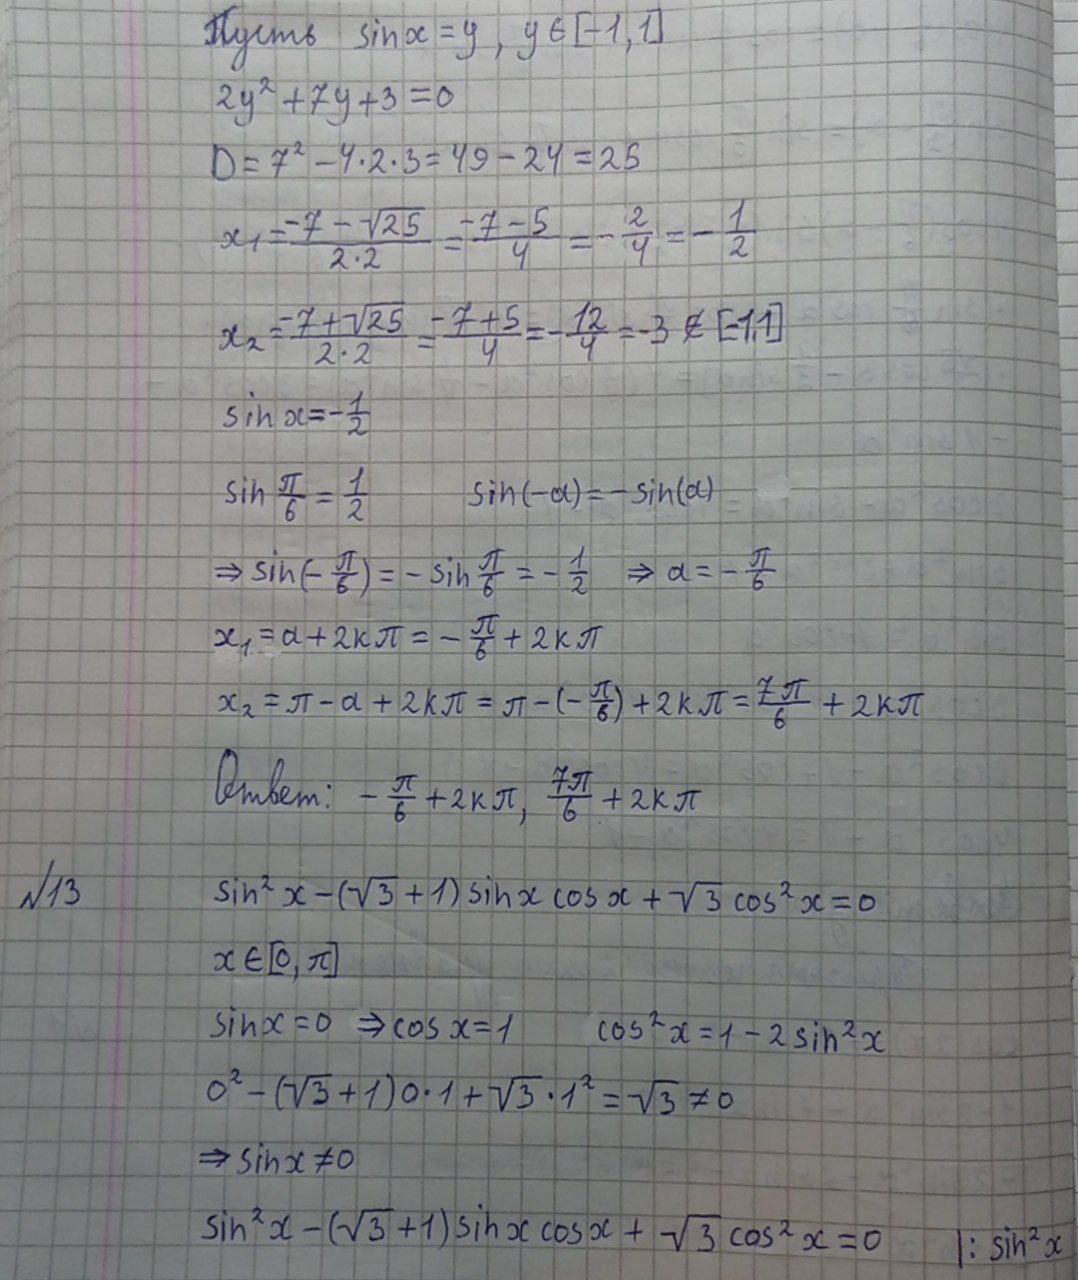 Пусть sinx = y, y∈[-1,1]
2y² + 7y + 3 = 0
D = 7² - 4·2·3 = 49 - 24 = 25
x₁ = (-7 - √25)/(2·2) = (-7 - 5)/4 = -2/4 = -1/2
x₂ = (-7 + √25)/(2·2) = (-7 + 5)/4 = -12/4 = -3 ∉ [-1,1]
sin x = -1/2
sin π/6 = 1/2 sin(-α) = -sin(α)
⇒ sin(-π/6) = -sin π/6 = -1/2 ⇒ α = -π/6
x₁ = α + 2kπ = -π/6 + 2kπ
x₂ = π - α + 2kπ = π - (-π/6) + 2kπ = 7π/6 + 2kπ
Ответ: -π/6 + 2kπ, 7π/6 + 2kπ
№13 sin²x - (√3 + 1) sinx cosx + √3 cos²x = 0
x∈[0, π]
sinx = 0 ⇒ cosx = 1 cos²x = 1 - 2sin²x
0² - (√3 + 1) 0·1 + √3·1² = √3 ≠ 0
⇒ sinx ≠ 0
sin²x - (√3 + 1) sinx cosx + √3 cos²x = 0 |: sin²x